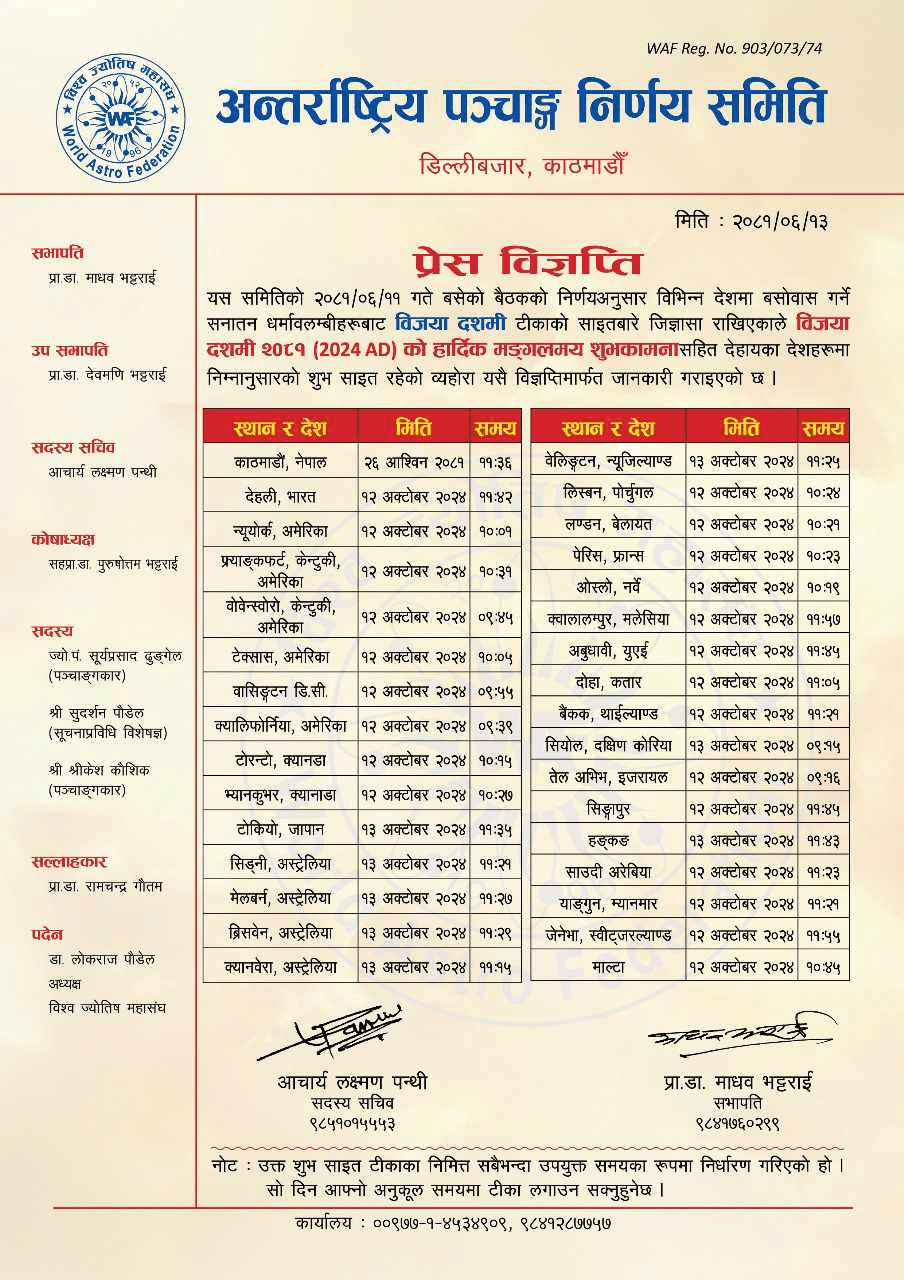 WAF Reg. No. 903/073/74
विश्व ज्योतिष महासंघ
२०५२
WAF
1996
World Astro Federation
अन्तर्राष्ट्रिय पञ्चाङ्ग निर्णय समिति
डिल्लीबजार, काठमाडौँ
मिति : २०८१/०६/१३
सभापति
प्रा.डा. माधव भट्टराई
उप सभापति
प्रा.डा. देवमणि भट्टराई
सदस्य सचिव
आचार्य लक्ष्मण पन्थी
कोषाध्यक्ष
सहप्रा.डा. पुरुषोत्तम भट्टराई
सदस्य
ज्यो.पं. सूर्यप्रसाद ढुङ्गेल
(पञ्चाङ्गकार)
श्री सुदर्शन पौडेल
(सूचनाप्रविधि विशेषज्ञ)
श्री श्रीकेश कौशिक
(पञ्चाङ्गकार)
सल्लाहकार
प्रा.डा. रामचन्द्र गौतम
पदेन
डा. लोकराज पौडेल
अध्यक्ष
विश्व ज्योतिष महासंघ
प्रेस विज्ञप्ति
यस समितिको २०८१/०६/११ गते बसेको बैठकको निर्णयअनुसार विभिन्न देशमा बसोवास गर्ने
सनातन धर्मावलम्बीहरूबाट विजया दशमी टीकाको साइतबारे जिज्ञासा राखिएकाले विजया
दशमी २०८१ (2024 AD) को हार्दिक मङ्गलमय शुभकामनासहित देहायका देशहरूमा
निम्नानुसारको शुभ साइत रहेको व्यहोरा यसै विज्ञप्तिमार्फत जानकारी गराइएको छ ।
स्थान र देश मिति समय
काठमाडौं, नेपाल २६ आश्विन २०८१ ११:३६
देहली, भारत १२ अक्टोबर २०२४ ११:४२
न्यूयोर्क, अमेरिका १२ अक्टोबर २०२४ १०:०१
फ्र्याङ्कफर्ट, केन्टुकी,
अमेरिका १२ अक्टोबर २०२४ १०:३१
वोवेन्स्वोरो, केन्टुकी,
अमेरिका १२ अक्टोबर २०२४ ०९:४५
टेक्सास, अमेरिका १२ अक्टोबर २०२४ १०:०५
वासिङ्गटन डि.सी. १२ अक्टोबर २०२४ ०९:५५
क्यालिफोर्निया, अमेरिका १२ अक्टोबर २०२४ ०९:३९
टोरन्टो, क्यानडा १२ अक्टोबर २०२४ १०:१५
भ्यानकुभर, क्यानाडा १२ अक्टोबर २०२४ १०:२७
टोकियो, जापान १३ अक्टोबर २०२४ ११:३५
सिड्नी, अस्ट्रेलिया १३ अक्टोबर २०२४ ११:२१
मेलबर्न, अस्ट्रेलिया १३ अक्टोबर २०२४ ११:२७
ब्रिसवेन, अस्ट्रेलिया १३ अक्टोबर २०२४ ११:२९
क्यानवेरा, अस्ट्रेलिया १३ अक्टोबर २०२४ ११:१५
स्थान र देश मिति समय
वेलिङ्गटन, न्यूजिल्याण्ड १३ अक्टोबर २०२४ ११:२५
लिस्बन, पोर्चुगल १२ अक्टोबर २०२४ १०:२४
लण्डन, बेलायत १२ अक्टोबर २०२४ १०:२१
पेरिस, फ्रान्स १२ अक्टोबर २०२४ १०:२३
ओस्लो, नर्वे १२ अक्टोबर २०२४ १०:१९
क्वालालम्पुर, मलेसिया १२ अक्टोबर २०२४ ११:५७
अबुधावी, युएई १२ अक्टोबर २०२४ ११:४५
दोहा, कतार १२ अक्टोबर २०२४ ११:०५
बैंकक, थाईल्याण्ड १२ अक्टोबर २०२४ ११:२१
सियोल, दक्षिण कोरिया १३ अक्टोबर २०२४ ०९:१५
तेल अभिभ, इजरायल १२ अक्टोबर २०२४ ०९:१६
सिङ्गापुर १२ अक्टोबर २०२४ ११:४५
हङ्कङ १३ अक्टोबर २०२४ ११:४३
साउदी अरेबिया १२ अक्टोबर २०२४ ११:२३
याङ्गुन, म्यानमार १२ अक्टोबर २०२४ ११:२१
जेनेभा, स्वीट्जरल्याण्ड १२ अक्टोबर २०२४ ११:५५
माल्टा १२ अक्टोबर २०२४ १०:४५
आचार्य लक्ष्मण पन्थी
सदस्य सचिव
९८५१०१५५५३
प्रा.डा. माधव भट्टराई
सभापति
९८४१७६०२९९
नोट : उक्त शुभ साइत टीकाका निमित्त सबैभन्दा उपयुक्त समयका रूपमा निर्धारण गरिएको हो ।
सो दिन आफ्नो अनुकूल समयमा टीका लगाउन सक्नुहुनेछ ।
कार्यालय : ००९७७-१-४५३४९०९, ९८४१२८७७५७